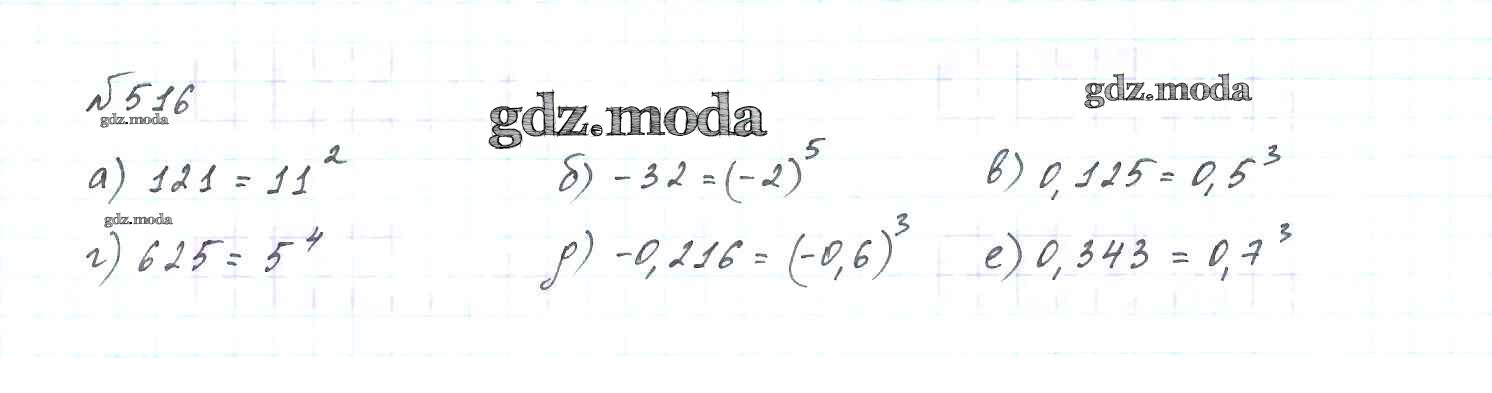 №516
gdz.moda
gdz.moda
gdz.moda
а) 121 = 11² б) -32 = (-2)⁵ в) 0,125 = 0,5³
gdz.moda
г) 625 = 5⁴ д) -0,216 = (-0,6)³ е) 0,343 = 0,7³